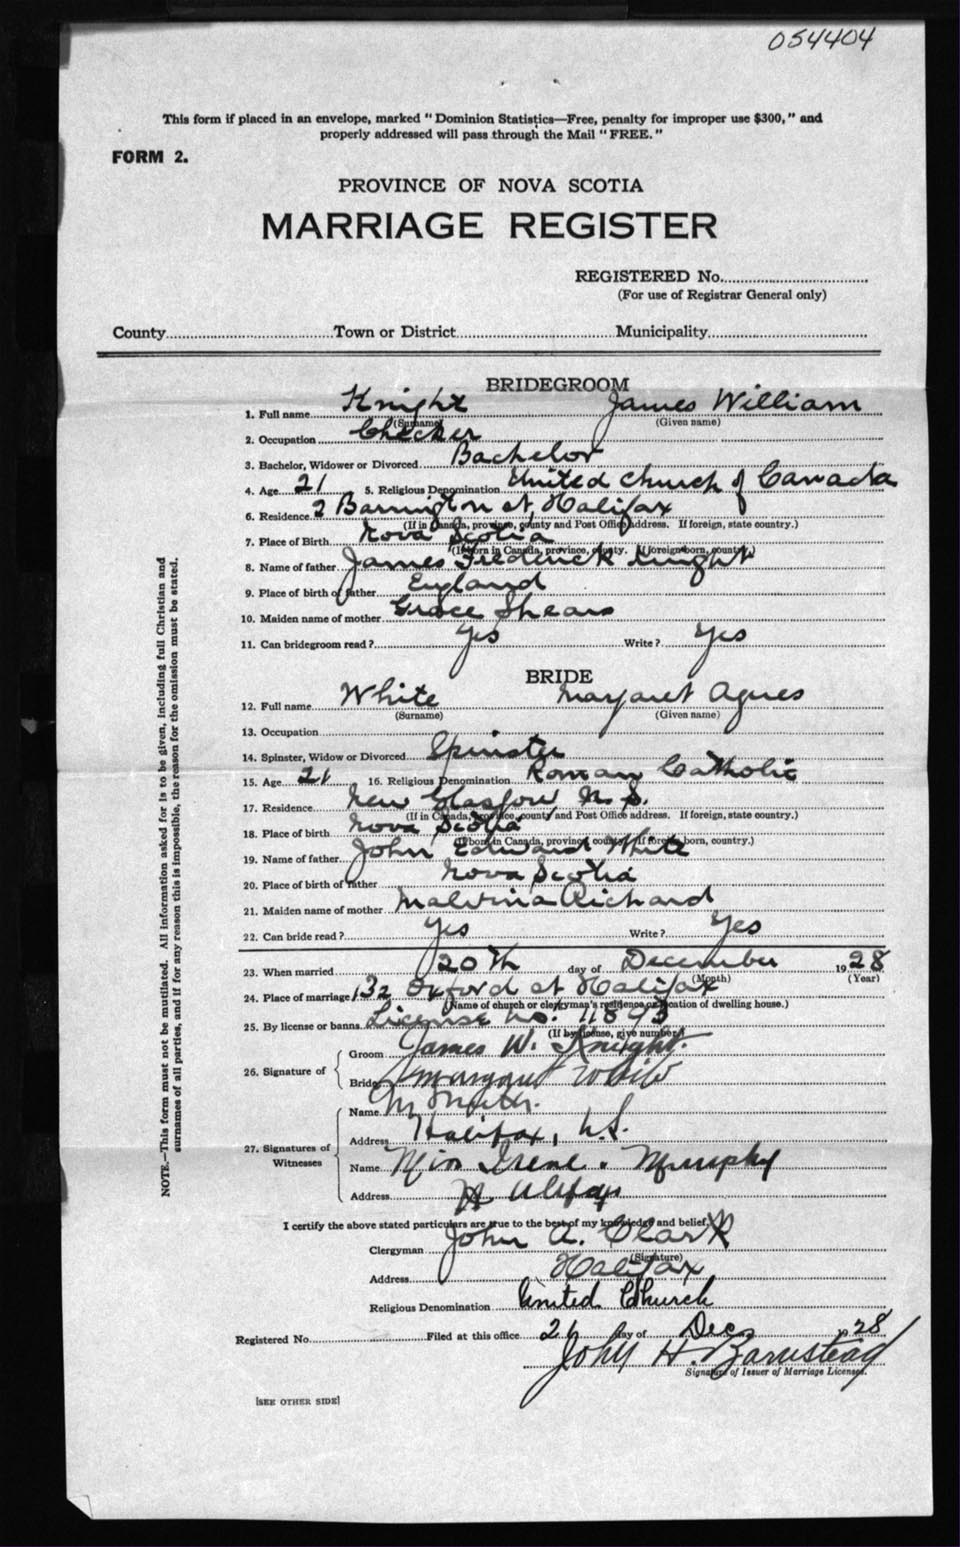 054404
This form if placed in an envelope, marked "Dominion Statistics—Free, penalty for improper use $300," and
properly addressed will pass through the Mail "FREE."
FORM 2.
PROVINCE OF NOVA SCOTIA
MARRIAGE REGISTER
REGISTERED No.
(For use of Registrar General only)
County Town or District Municipality
BRIDEGROOM
1. Full name Knight James William
(Surname) (Given name)
2. Occupation Checker
3. Bachelor, Widower or Divorced Bachelor
4. Age 21 5. Religious Denomination United Church of Canada
6. Residence 2 Barrington st, Halifax
(If in Canada, province, county and Post Office address. If foreign, state country.)
7. Place of Birth Nova Scotia
(If born in Canada, province, county. If foreign born, country.)
8. Name of father James Frederick Knight
9. Place of birth of father England
10. Maiden name of mother Grace Shears
11. Can bridegroom read? Yes Write? Yes
BRIDE
12. Full name White Margaret Agnes
(Surname) (Given name)
13. Occupation
14. Spinster, Widow or Divorced Spinster
15. Age 21 16. Religious Denomination Roman Catholic
17. Residence New Glasgow N. S.
(If in Canada, province, county and Post Office address. If foreign, state country.)
18. Place of birth Nova Scotia
(If born in Canada, province, county. If foreign born, country.)
19. Name of father John Edward White
20. Place of birth of father Nova Scotia
21. Maiden name of mother Malvina Richard
22. Can bride read? Yes Write? Yes
23. When married 20th day of December 1928
(Month) (Year)
24. Place of marriage 132 Oxford st Halifax
(Name of church or clergyman's residence or location of dwelling house.)
25. By license or banns License no. 11893
(If by license, give number)
26. Signature of
Groom James W. Knight.
Bride Margaret White
27. Signatures of Witnesses
Name M
Address Halifax, N.S.
Name Miss Irene Murphy
Address Halifax
I certify the above stated particulars are true to the best of my knowledge and belief,
Clergyman John A. Clark
(Signature)
Address Halifax
Religious Denomination United Church
Registered No. Filed at this office 21 day of Dec 1928
John H. Barnstead
Signature of Issuer of Marriage Licenses.
[SEE OTHER SIDE]
NOTE.—This form must not be mutilated. All information asked for is to be given, including full Christian and
surnames of all parties, and if for any reason this is impossible, the reason for the omission must be stated.